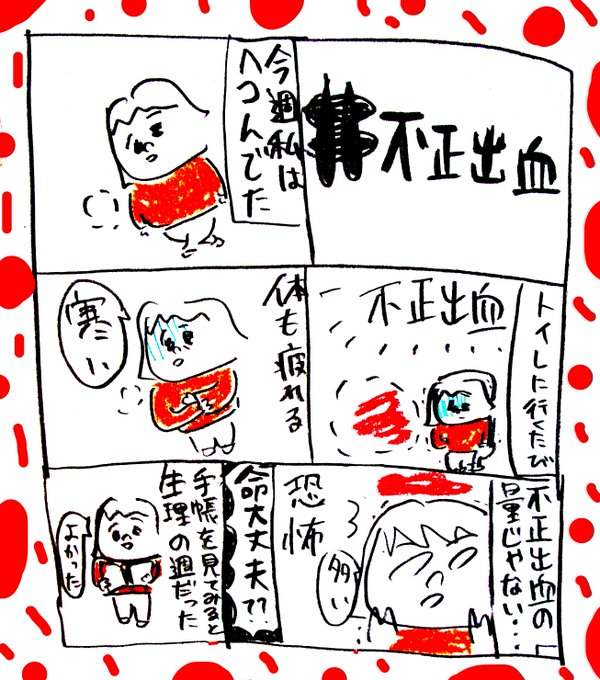 不正出血
今週私は
ヘコんでた
トイレに行くたび
不正出血
体も疲れる
寒い
不正出血の
量じゃない・・
多い
恐怖
命大丈夫??
手帳を見てみると
生理の週だった
よかった